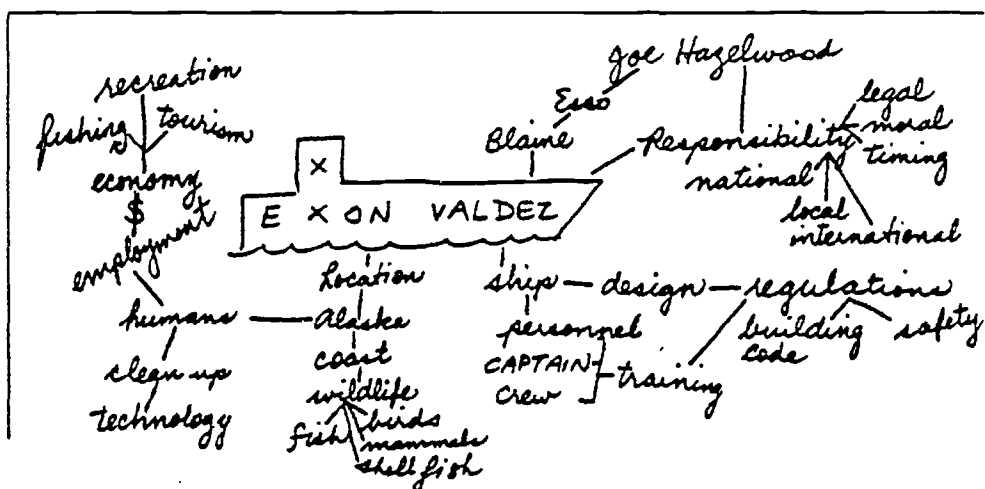 recreation
fishing
tourism
economy
$
employment
humans
clean up
technology
X
E X ON VALDEZ
Location
Alaska
coast
wildlife
fish
birds
mammals
shell fish
Joe Hazelwood
Esso
Blaine
Responsibility
legal
moral
timing
national
local
international
ship — design — regulations
personnel
CAPTAIN
crew
training
building
code
safety